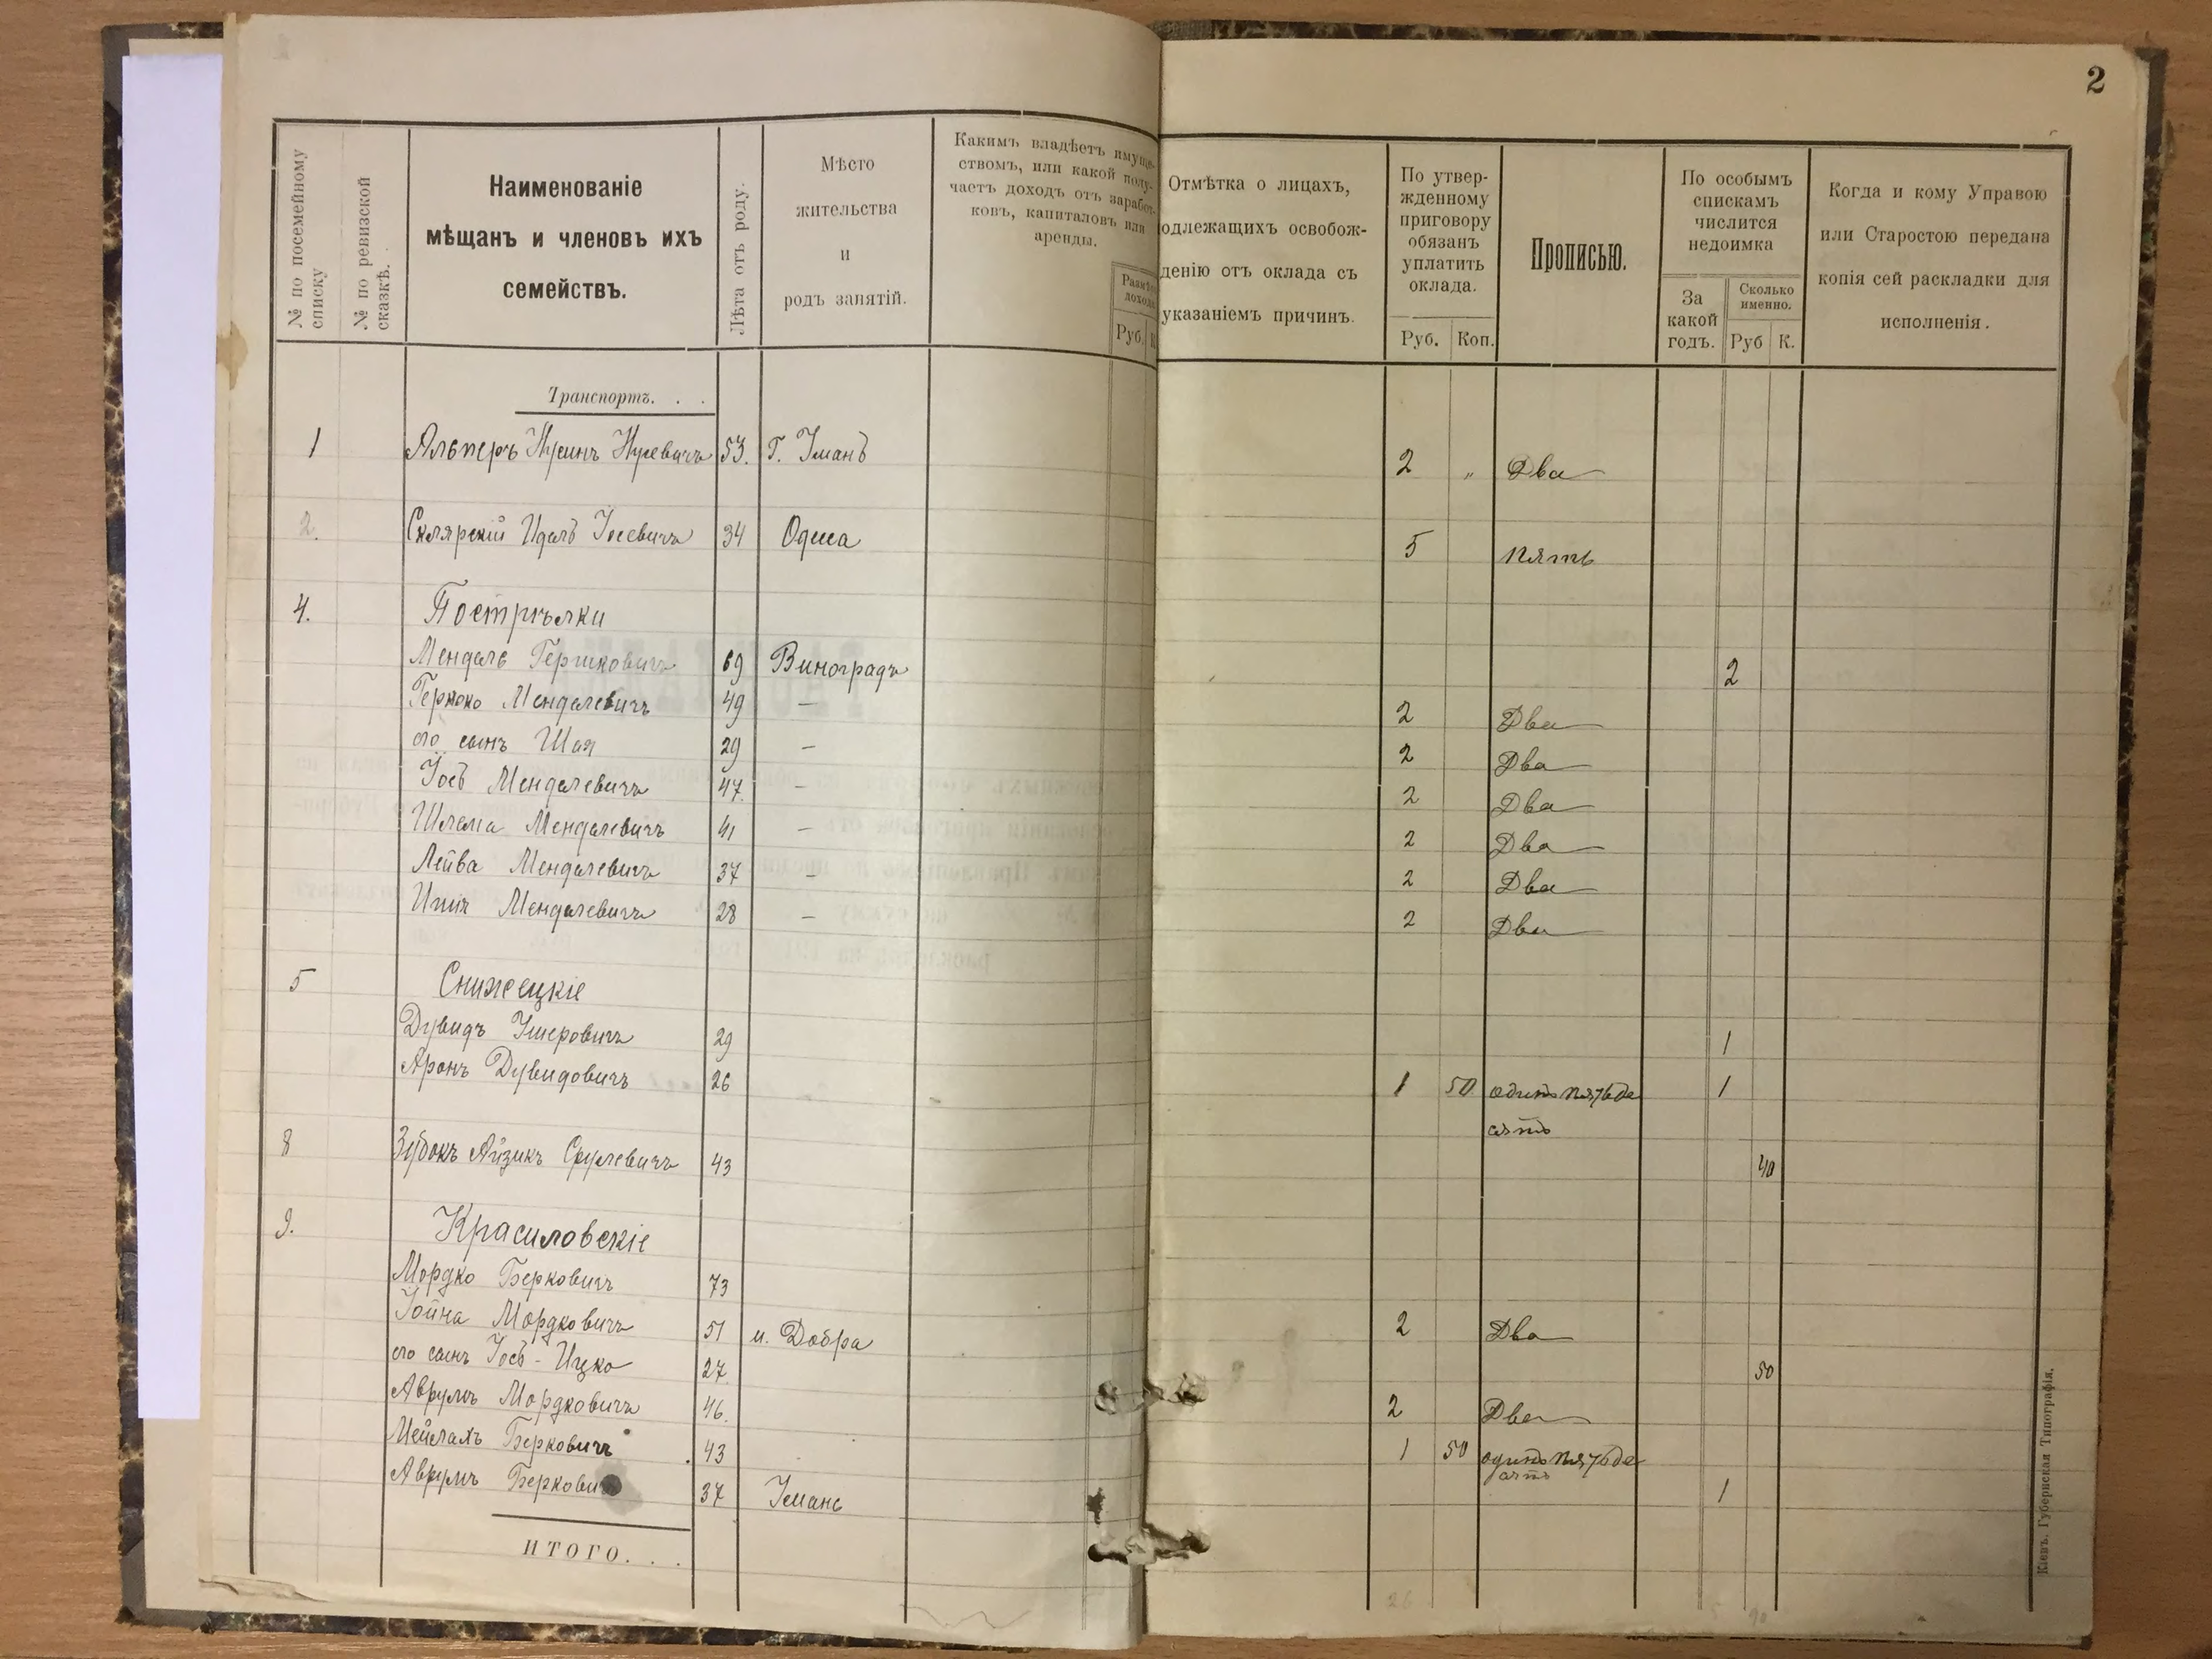 2
№ по посемейному списку
№ по ревизской сказкѣ.
Наименованіе
мѣщанъ и членовъ ихъ
семействъ.
Лѣта отъ роду.
Мѣсто
жительства
и
родъ занятій.
Какимъ владѣетъ имуще-
ствомъ, или какой полу-
чаетъ доходъ отъ заработ-
ковъ, капиталовъ или
аренды.
Руб.
К.
Отмѣтка о лицахъ,
одлежащихъ освобож-
денію отъ оклада съ
указаніемъ причинъ.
По утвер-
жденному
приговору
обязанъ
уплатить
оклада.
Руб. Коп.
Прописью.
По особымъ
спискамъ
числится
недоимка
За
какой
годъ.
Сколько
именно.
Руб К.
Когда и кому Управою
или Старостою передана
копія сей раскладки для
исполненія.
Транспортъ. . .
1 Альперъ 53. Г. Умань 2 " Два
2. Склярскій Идель Іосевичъ 34 Одесса 5 пять
4. Пострѣлки
Мендель Гершковичъ 69 Виноградъ 2
Гершко Менделевичъ 49 — 2 Два
его сынъ Шая 29 — 2 Два
Іось Менделевичъ 47. — 2 Два
Шлема Менделевичъ 41 — 2 Два
Лейба Менделевичъ 37 — 2 Два
Менделевичъ 28 — 2 Два
5 Снижецкіе
Дувидъ Ушеровичъ 29 1
Аронъ Дувидовичъ 26 1 50 одинъ пятьде
сятъ 1
8 Зубокъ Айзикъ Срулевичъ 43 40
9. Красиловскіе
Мордко Берковичъ 73
Іойна Мордковичъ 51 м. Добра 2 Два
его сынъ Іось-Ицко 27 50
Аврумъ Мордковичъ 46. 2 Два
Мейлахъ Берковичъ 43 1 50 одинъ пятьде
сятъ
Аврумъ Беркович 37 Умань 1
ИТОГО. . .
26 5 90
Кіевъ. Губернская Типографія.